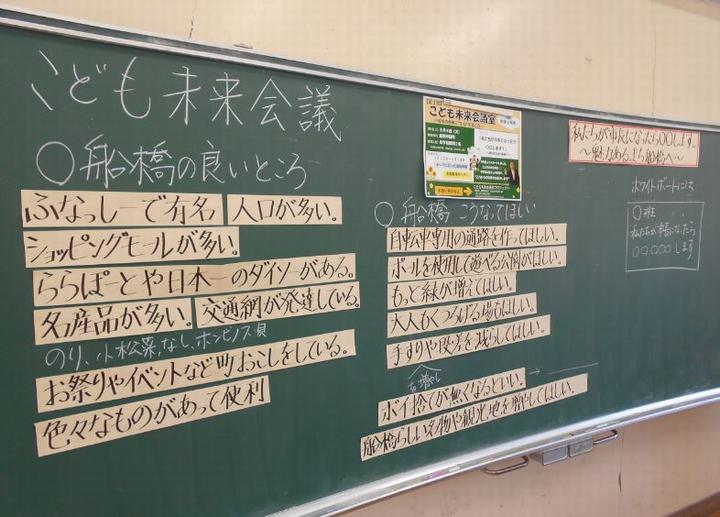 こども未来会議
○船橋の良いところ
ふなっしーで有名 人口が多い。
ショッピングモールが多い。
ららぽーとや日本一のダイソーがある。
名産品が多い。 交通網が発達している。
のり、小松菜、なし、ホンビノス貝
お祭りやイベントなど町おこしをしている。
色々なものがあって便利
こども未来会議室
○船橋 こうなってほしい
自転車専用の通路を作ってほしい。
ボールを使用して遊べる公園がほしい。
もっと緑が増えてほしい。
大人もくつろげる場もほしい。
手すりや段差を減らしてほしい。
を増やし
ポイ捨てが無くなるといい。→
船橋らしい名物や観光地を増やしてほしい。
私たちが市長になったら〇〇します。
～魅力あるまち船橋へ～
ホワイトボードには
○班
私たちが市長になったら
○○○○○します